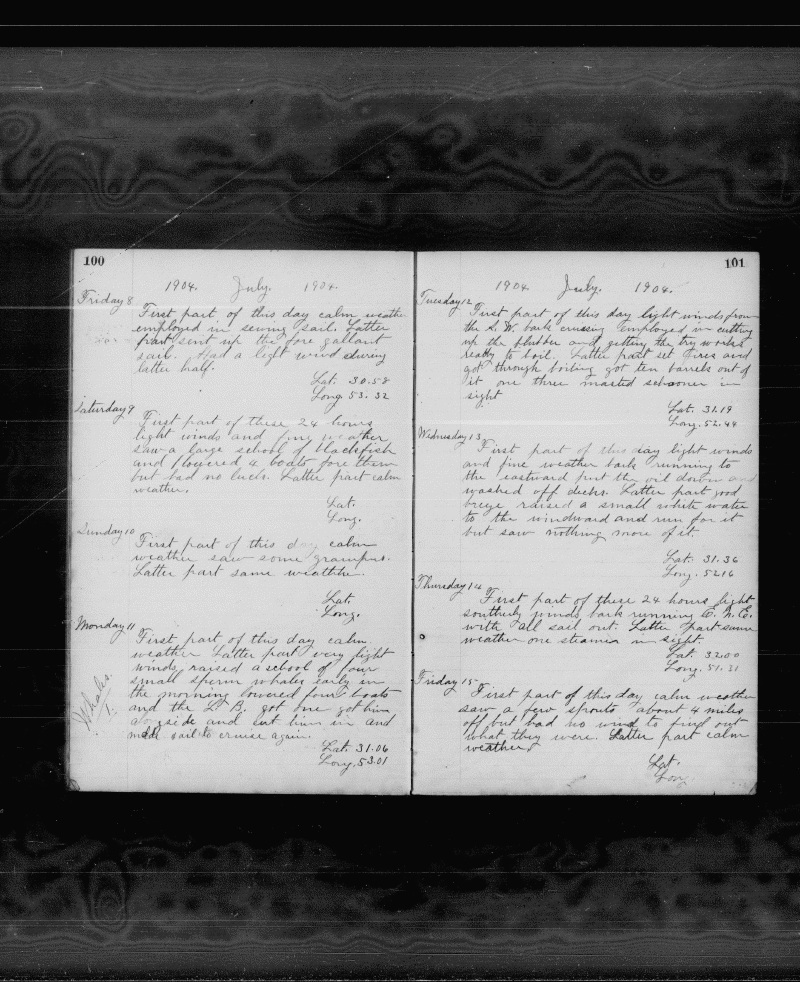 100
1904. July. 1904.
Friday 8
First part of this day calm weather
employed in sewing sail. Latter
part sent up the fore gallant
sail. Had a light wind during
latter half.
Lat. 30.58
Long. 53.32
Saturday 9
First part of these 24 hours
light winds and fine weather
saw a large school of blackfish
and flowered 4 boats fore them
but had no luck. Latter part calm
weather.
Lat.
Long.
Sunday 10
First part of this day calm
weather saw some grampus.
Latter part same weather.
Lat.
Long.
Monday 11
First part of this day calm
weather Latter part very light
winds, raised a school of four
small sperm whales early in
the morning lowered four boats
and the L. B. got one got him
alongside and cut him in and
made sail to cruise again.
Whales
1.
Lat. 31.06
Long. 53.01
101
1904. July. 1904.
Tuesday 12
First part of this day light winds from
the S. W. bark cruising employed in cutting
up the blubber and getting the try works
ready to boil. Latter part set fires and
got through boiling got ten barrels out of
it one three masted schooner in
sight
Lat. 31.19
Long. 52.44
Wednesday 13
First part of this day light winds
and fine weather bark running to
the eastward put the oil down and
washed off decks. Latter part good
breze raised a small white water
to the windward and run for it
but saw nothing more of it.
Lat. 31.36
Long. 52.16
Thursday 14
First part of these 24 hours light
southerly winds bark running E. N. E.
with all sail out. Latter part same
weather one steamer in sight.
Lat. 32.00
Long. 51.31
Friday 15
First part of this day calm weather
saw a few sprouts about 4 miles
off but had no wind to find out
what they were. Latter part calm
weather,
Lat.
Long